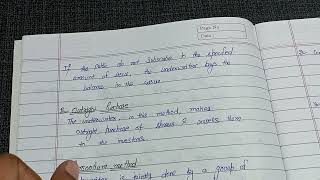 Page No.
Date
If the public do not subscribe to the specified
amount of issue, the underwriter buys the
balance in the issue
2- Outright Purchase
The underwriter, in this method, makes
outright purchase of shares & resells them
to the investors
method
is jointly done by a group of